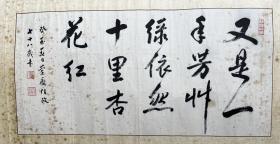 又是一
年芳艸
绿依然
十里杏
花红